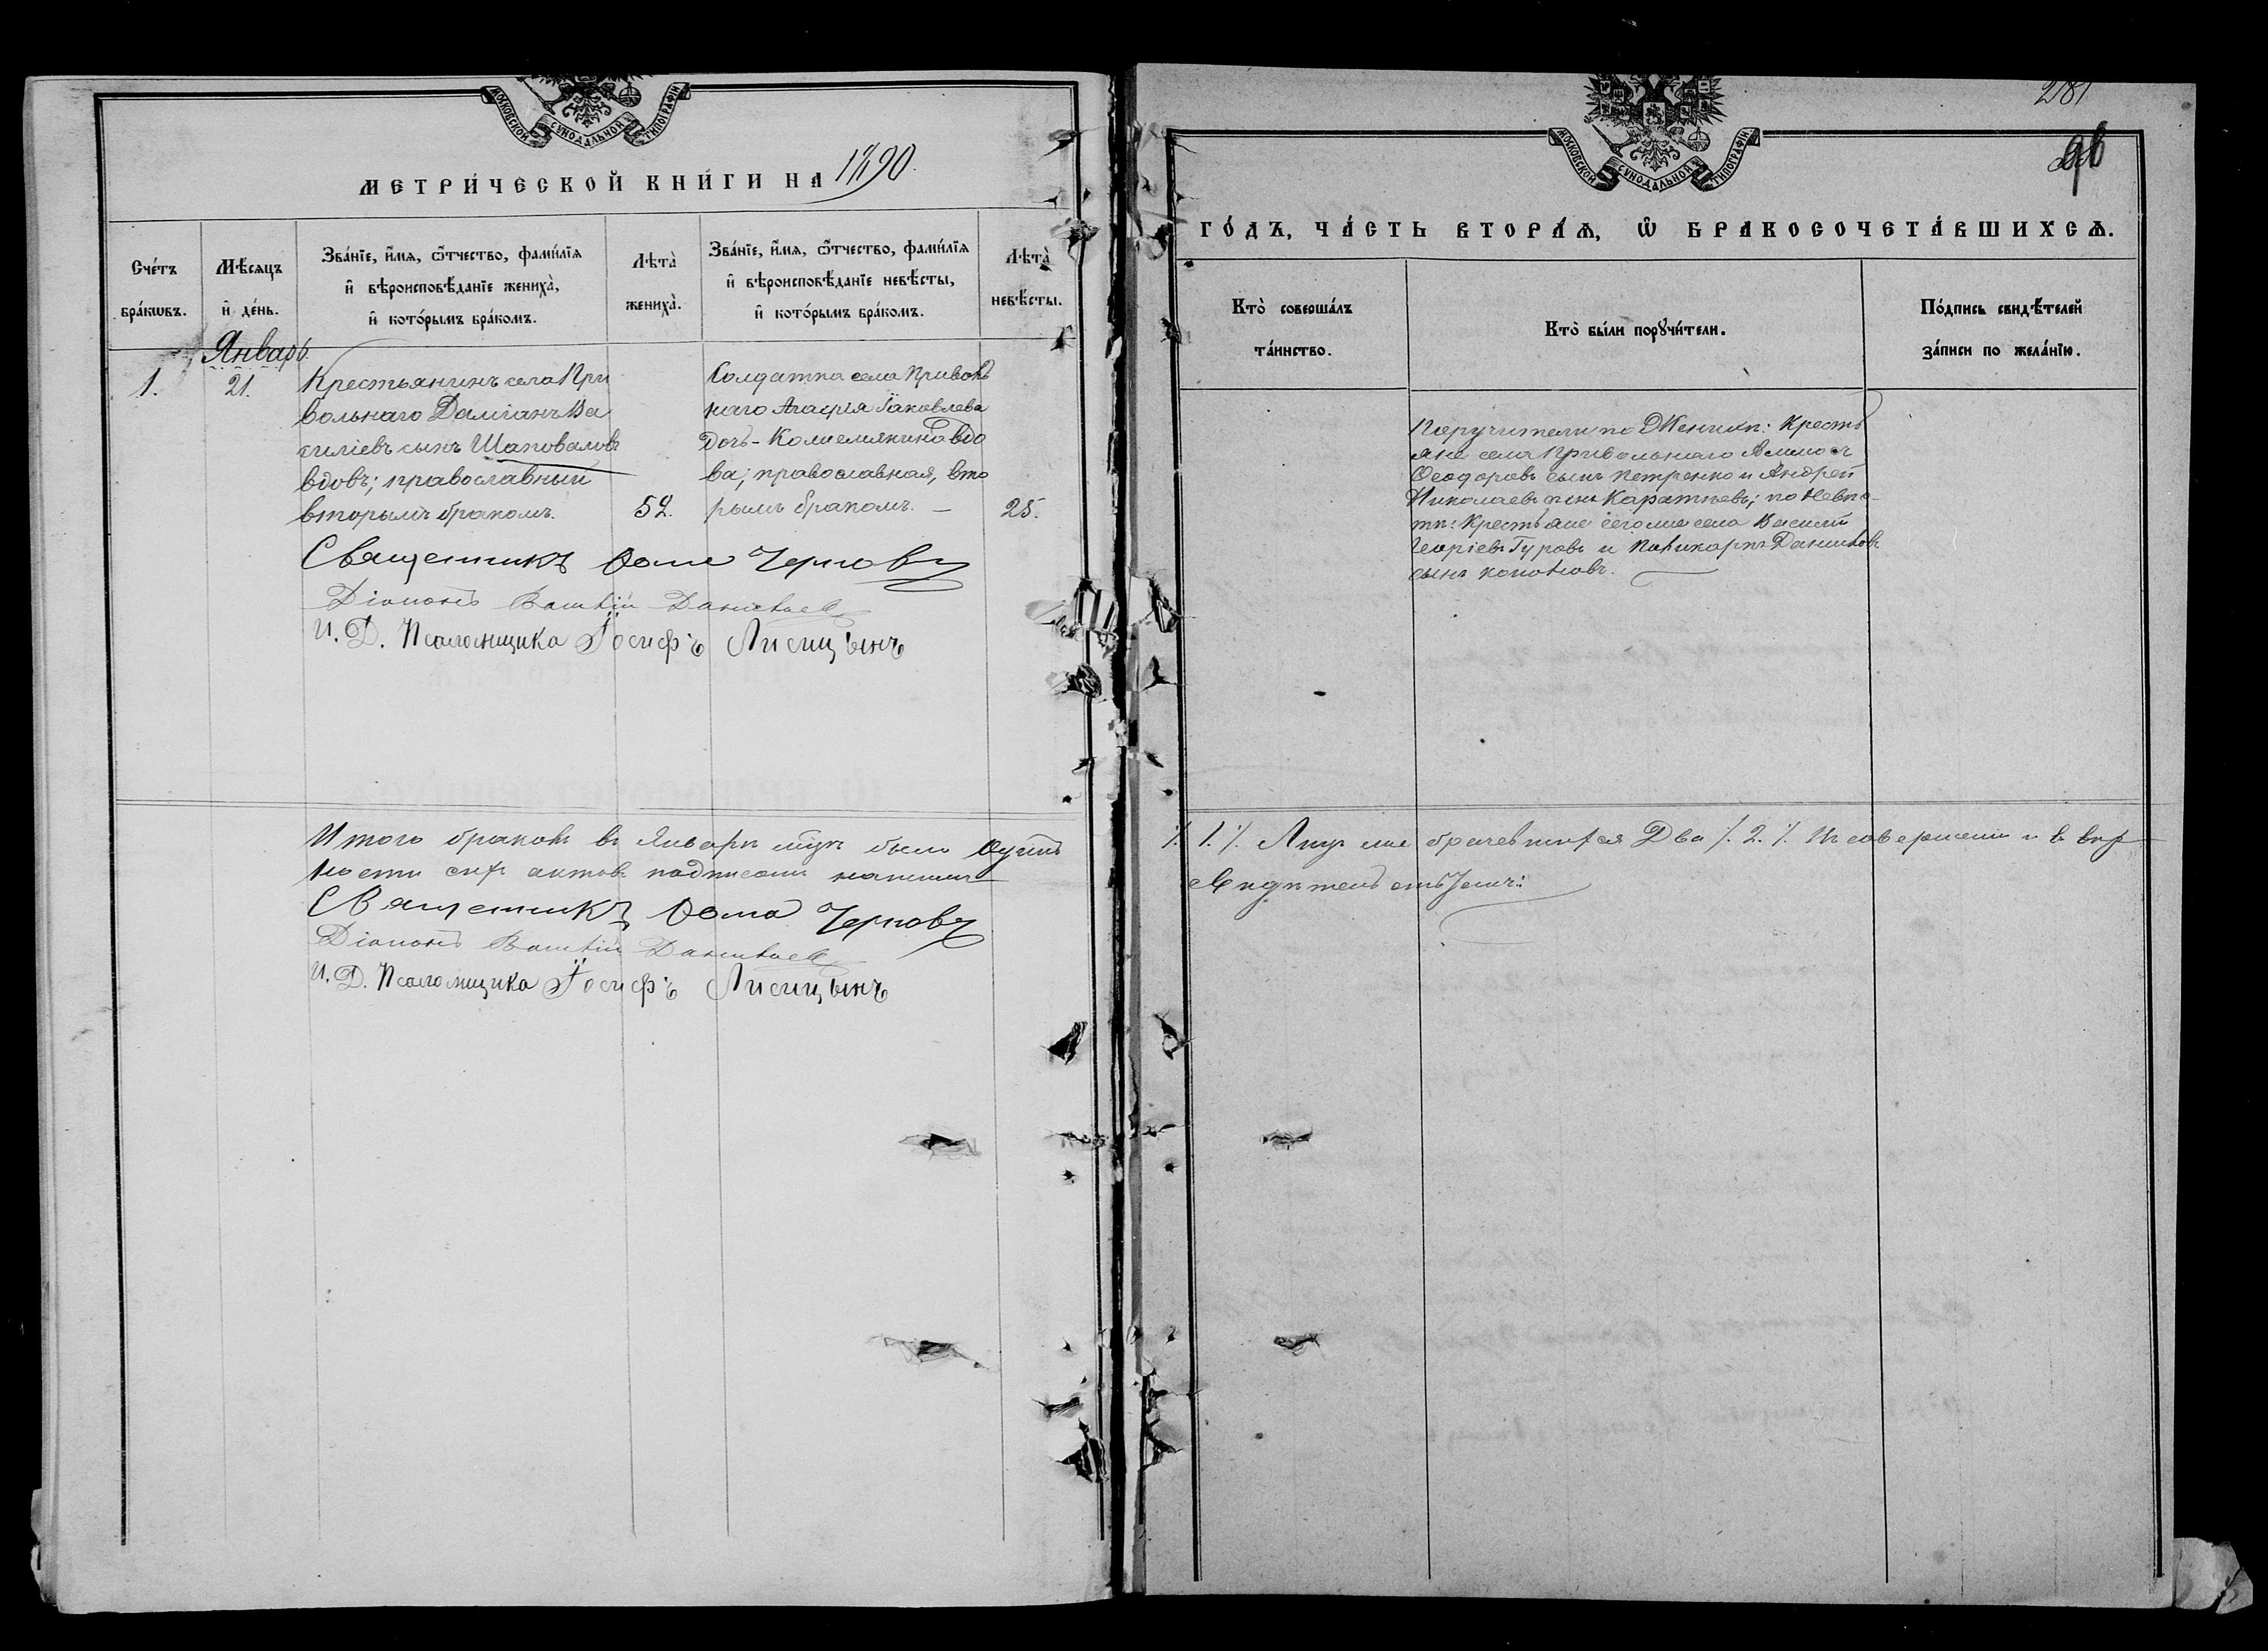 МОСКОВСКОЙ СѴНОДАЛЬНОЙ ТИПОГРАФІИ
МЕТРИ́ЧЕСКОЙ КНИ́ГИ НА 1890.
Сче́тъ бра́кѡвъ.
Мѣ́сяцъ и҆ де́нь.
Зва́нїе, и҆́мѧ, ѻ҆́тчество, фами́лїѧ и҆ вѣроисповѣ́данїе жениха̀, и҆ кото́рымъ бра́комъ.
Лѣта̀ жениха̀.
Зва́нїе, и҆́мѧ, ѻ҆́тчество, фами́лїѧ и҆ вѣроисповѣ́данїе невѣ́сты, и҆ кото́рымъ бра́комъ.
Лѣта̀ невѣ́сты.
Январь.
1.
21.
Крестьянинъ села При
вольнаго Даміанъ Ва
силіевъ сынъ Шаповаловъ
вдовъ; православный
вторымъ бракомъ.
52.
Солдатка села Приволь
наго Агафія Іаковлева
дочь - вдо
ва; православная, вто
рымъ бракомъ. —
25.
Священникъ Ѳома Черновъ
Діаконъ Данилаевъ
И. Д. Псаломщика Іосифъ Лисицынъ
Итого браковъ въ Январѣ мцѣ было Одинъ
ности сихъ актовъ подписами нашими
Священникъ Ѳома Черновъ
Діаконъ Данилаевъ
И. Д. Псаломщика Іосифъ Лисицынъ
281
МОСКОВСКОЙ СѴНОДАЛЬНОЙ ТИПОГРАФІИ
ГО́ДЪ, ЧА́СТЬ ВТОРА́Ѧ, Ѡ҆ БРАКОСОЧЕТА́ВШИХСѦ.
Кто̀ соверша́лъ та́инство.
Кто̀ бы́ли порꙋчи́тели.
По́дпись свидѣ́телей за́писи по жела́нїю.
Поручители по Женихѣ: Кресть
яне села Привольнаго
Ѳеодоровъ сынъ Петренко и Андрей
Николаевъ сынъ Каратѣевъ; по Невѣс-
тѣ: Крестьяне сегоже села Василій
Георгіевъ Гуровъ и Поликарпъ Даниловъ
сынъ
./. 1. ./. Лицъ же Два ./. 2. ./. Въ совершеніи и въ вѣр
свидѣтельствуемъ: